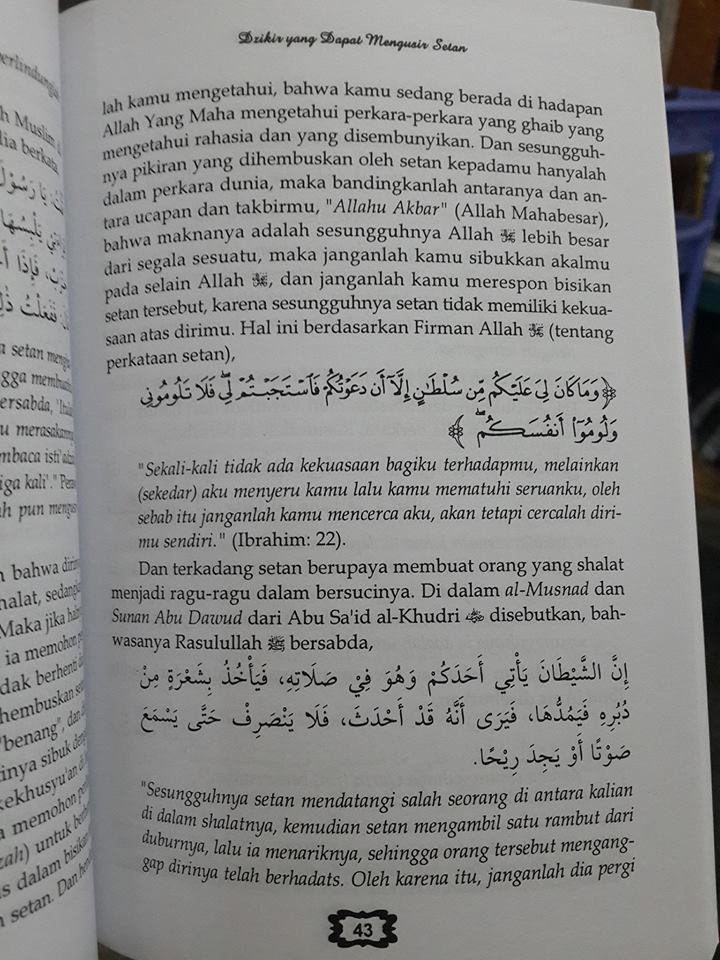 erlindunga
h Muslim d
lia berkata
ل، يَا رَسُوْلَ
يَلْبِسُهَا
رَبٌ، فَإِذَا أَ
فَفَعَلْتُ ذٰلِ
a setan mengi
gga membua
ersabda, "Itula
u merasakann
mbaca isti'adz
iga kali'." Pers
ah pun mengus
n bahwa dirin
halat, sedang
Maka jika ham
ia memohon p
dak berhenti d
hembuskan set
"benang", dan
inya sibuk deng
kekhusyu'an di
a memohon per
zah) untuk berh
s dalam bisikan
n setan. Dan ben
Dzikir yang Dapat Mengusir Setan
lah kamu mengetahui, bahwa kamu sedang berada di hadapan
Allah Yang Maha mengetahui perkara-perkara yang ghaib yang
mengetahui rahasia dan yang disembunyikan. Dan sesungguh-
nya pikiran yang dihembuskan oleh setan kepadamu hanyalah
dalam perkara dunia, maka bandingkanlah antaranya dan an-
tara ucapan dan takbirmu, "Allahu Akbar" (Allah Mahabesar),
bahwa maknanya adalah sesungguhnya Allah ﷻ lebih besar
dari segala sesuatu, maka janganlah kamu sibukkan akalmu
pada selain Allah ﷻ, dan janganlah kamu merespon bisikan
setan tersebut, karena sesungguhnya setan tidak memiliki kekua-
saan atas dirimu. Hal ini berdasarkan Firman Allah ﷻ (tentang
perkataan setan),
﴿وَمَا كَانَ لِىَ عَلَيْكُم مِّن سُلْطَـٰنٍ إِلَّآ أَن دَعَوْتُكُمْ فَٱسْتَجَبْتُمْ لِى ۖ فَلَا تَلُومُونِى
وَلُومُوٓا۟ أَنفُسَكُم ۖ﴾
"Sekali-kali tidak ada kekuasaan bagiku terhadapmu, melainkan
(sekedar) aku menyeru kamu lalu kamu mematuhi seruanku, oleh
sebab itu janganlah kamu mencerca aku, akan tetapi cercalah diri-
mu sendiri." (Ibrahim: 22).
Dan terkadang setan berupaya membuat orang yang shalat
menjadi ragu-ragu dalam bersucinya. Di dalam al-Musnad dan
Sunan Abu Dawud dari Abu Sa'id al-Khudri رضي الله عنه disebutkan, bah-
wasanya Rasulullah ﷺ bersabda,
إِنَّ الشَّيْطَانَ يَأْتِي أَحَدَكُمْ وَهُوَ فِيْ صَلَاتِهِ، فَيَأْخُذُ بِشَعْرَةٍ مِنْ
دُبُرِهِ فَيَمُدُّهَا، فَيَرَى أَنَّهُ قَدْ أَحْدَثَ، فَلَا يَنْصَرِفْ حَتَّى يَسْمَعَ
صَوْتًا أَوْ يَجِدَ رِيْحًا.
"Sesungguhnya setan mendatangi salah seorang di antara kalian
di dalam shalatnya, kemudian setan mengambil satu rambut dari
duburnya, lalu ia menariknya, sehingga orang tersebut mengang-
gap dirinya telah berhadats. Oleh karena itu, janganlah dia pergi
43